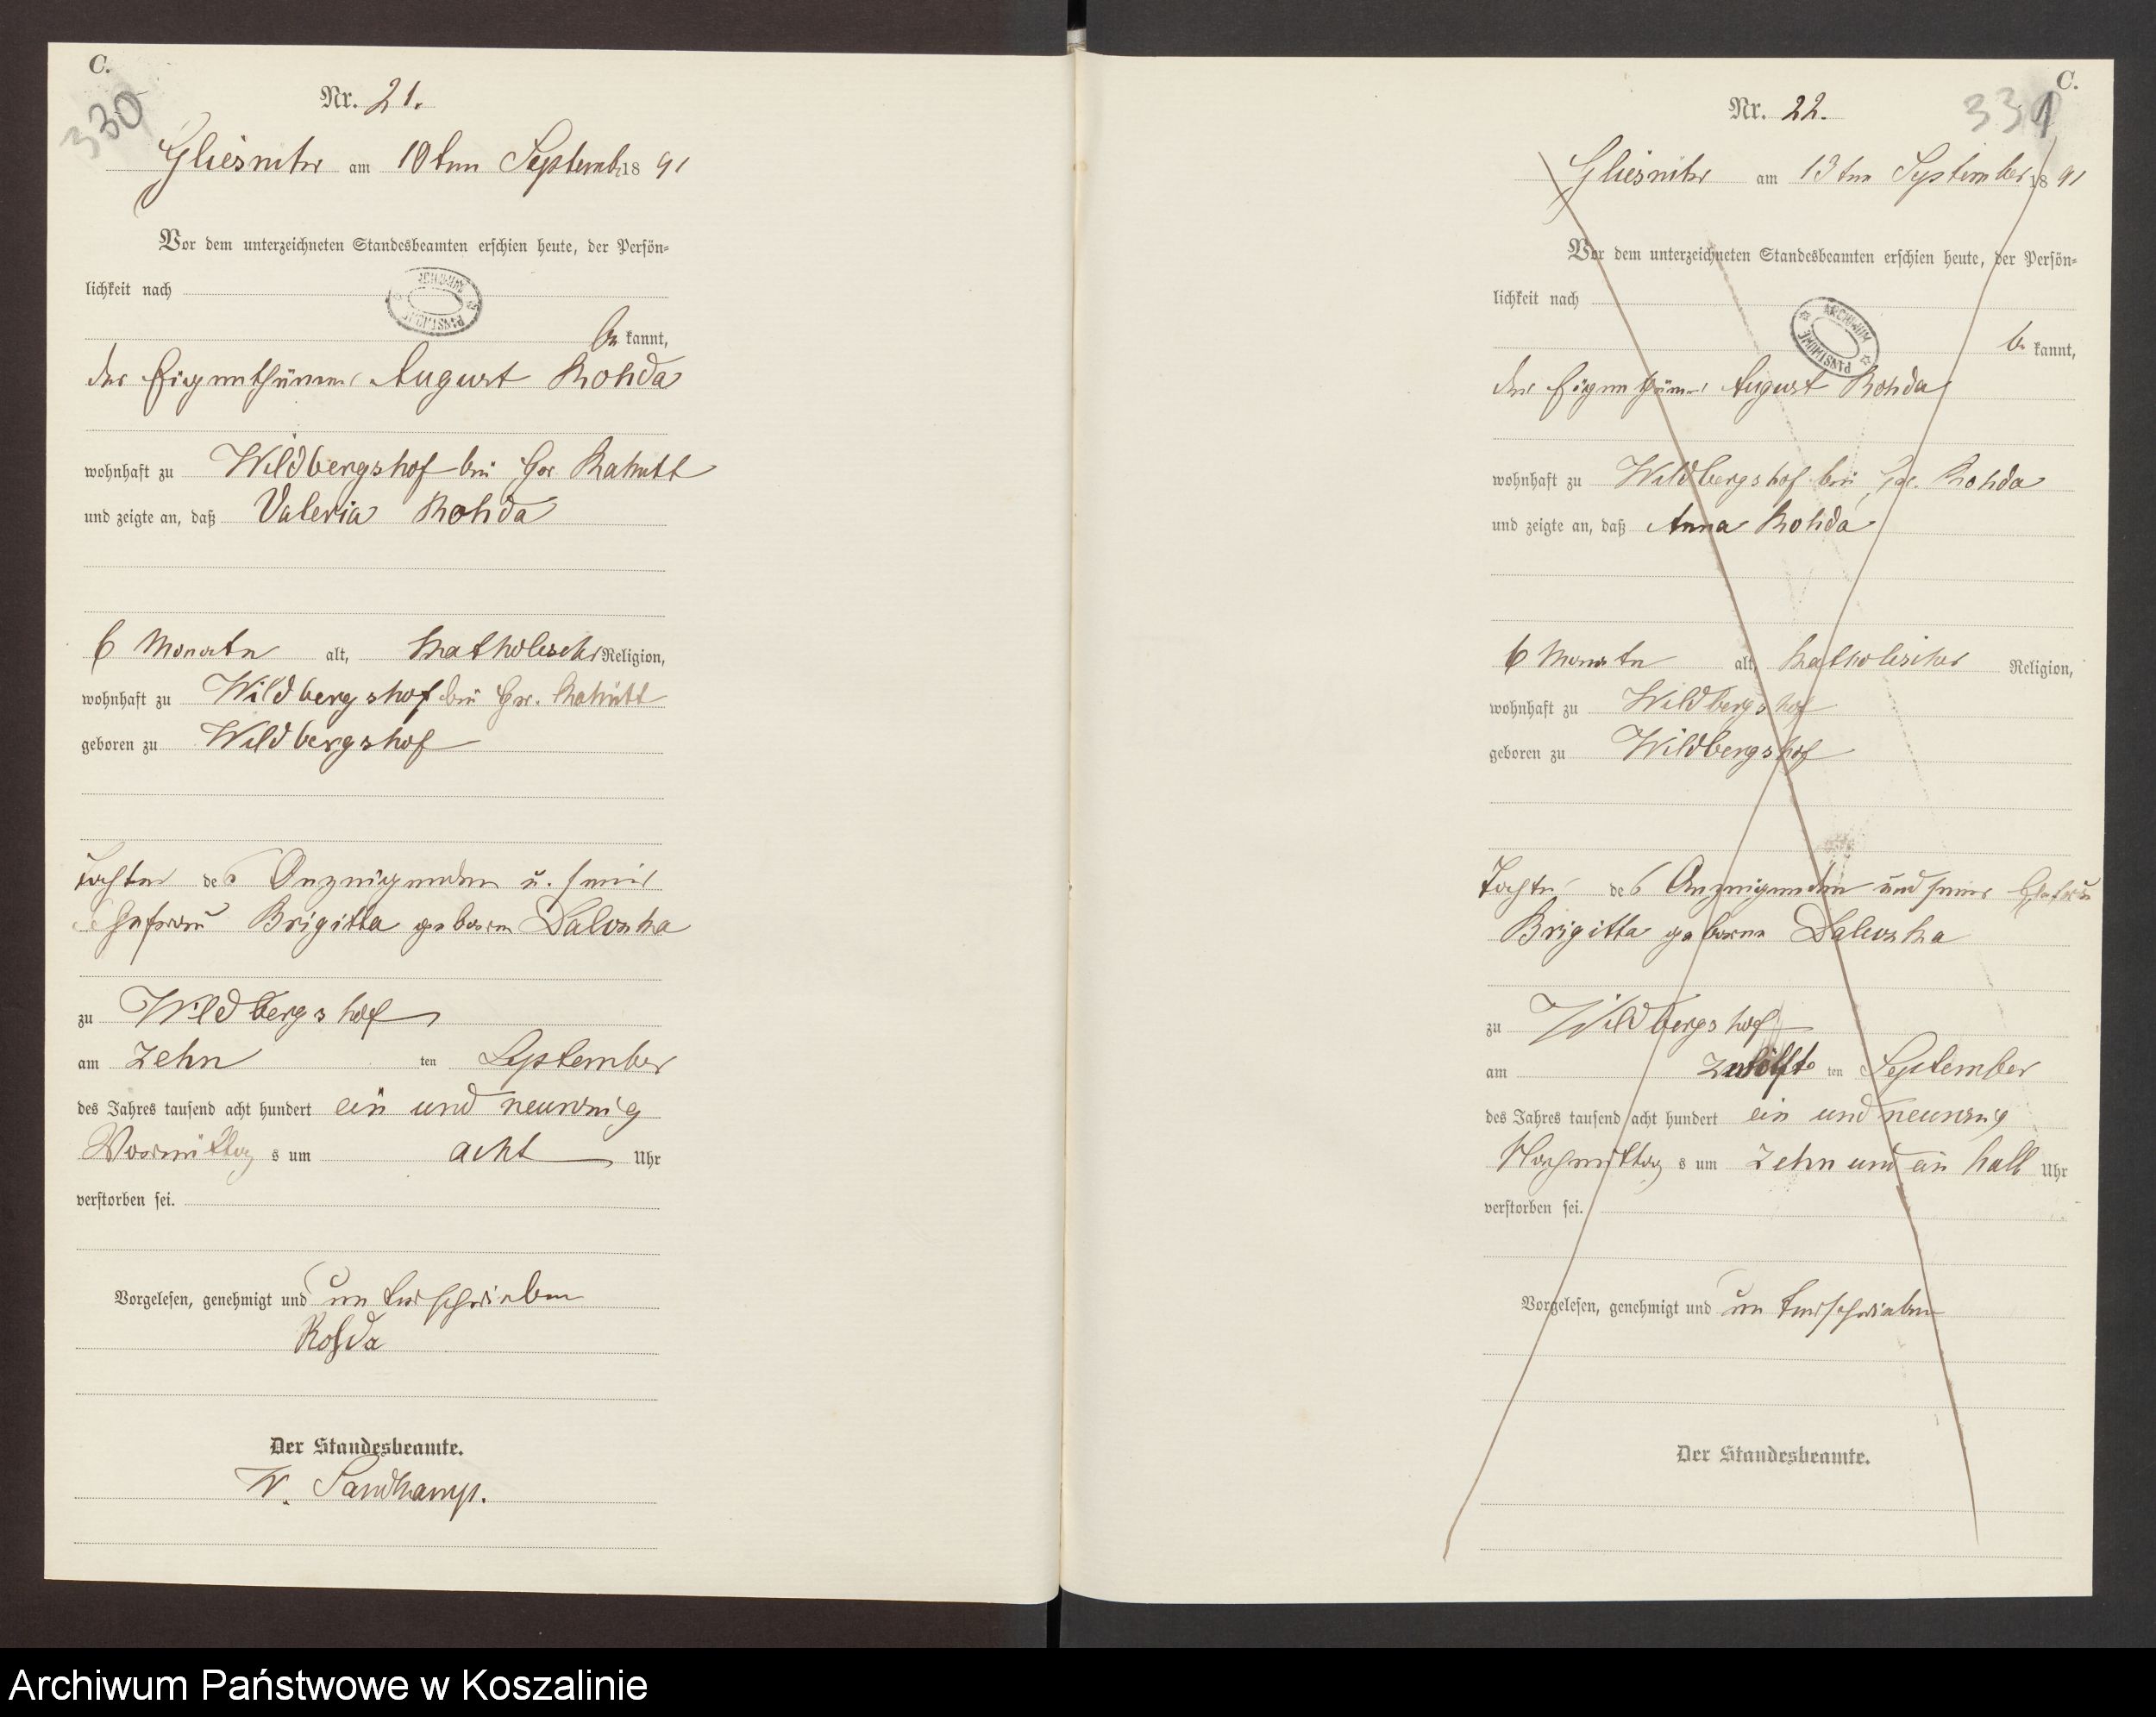 C.
330
Nr. 21.
Gliesnitz am 10ten Septemb. 18 91
Vor dem unterzeichneten Standesbeamten erschien heute, der Persön=
lichkeit nach
be kannt,
der Eigenthümer August Rohda
wohnhaft zu Wildbergshof bei Gr.
und zeigte an, daß Valeria Rohda
6 Monate alt, katholischer Religion,
wohnhaft zu Wildbergshof bei Gr.
geboren zu Wildbergshof
Tochter des Anzeigenden u. seiner
Ehefrau Brigitta geborene
zu Wildbergshof
am zehn ten September
des Jahres tausend acht hundert ein und neunzig
Vormittag s um acht Uhr
verstorben sei.
Vorgelesen, genehmigt und unterschrieben
Rohda
Der Standesbeamte.
W. Sandkamp.
C.
331
Nr. 22.
Gliesnitz am 13ten September 18 91
Vor dem unterzeichneten Standesbeamten erschien heute, der Persön=
lichkeit nach
ARCHIWUM PAŃSTWOWE
be kannt,
der Eigenthümer August Rohda
wohnhaft zu Wildbergshof bei Gr. Rohda
und zeigte an, daß Anna Rohda
6 Monate alt, katholischer Religion,
wohnhaft zu Wildbergshof
geboren zu Wildbergshof
Tochter des Anzeigenden und seiner Ehefrau
Brigitta geborene
zu Wildbergshof
am zwölfte ten September
des Jahres tausend acht hundert ein und neunzig
Nachmittag s um zehn und ein halb Uhr
verstorben sei.
Vorgelesen, genehmigt und unterschrieben
Der Standesbeamte.
Archiwum Państwowe w Koszalinie